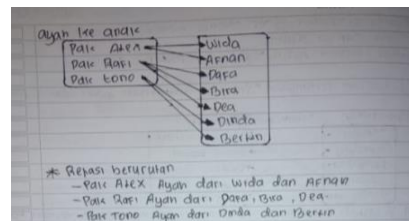 ayah ke anak
Pak Alex
Pak Rafi
Pak tono
Wida
Afnan
Dafa
Bira
Dea
Dinda
Berlin
* Relasi berurutan
- Pak Alex Ayah dari Wida dan Afnan
- Pak Rafi Ayah dari Dafa, Bira, Dea.
- Pak Tono Ayah dari Dinda dan Berlin